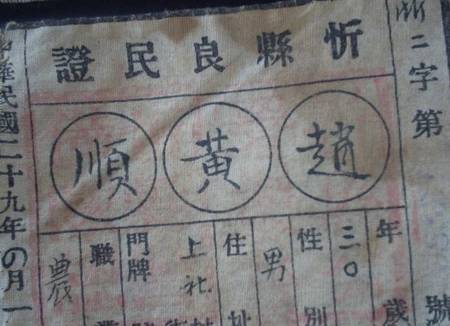 忻縣良民證
忻二字第
號
趙黃順
年三〇歲
性別男
住址上社
門牌
職業農
中華民國二十九年〇月一